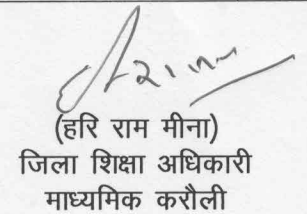 (हरि राम मीना)
जिला शिक्षा अधिकारी
माध्यमिक करौली